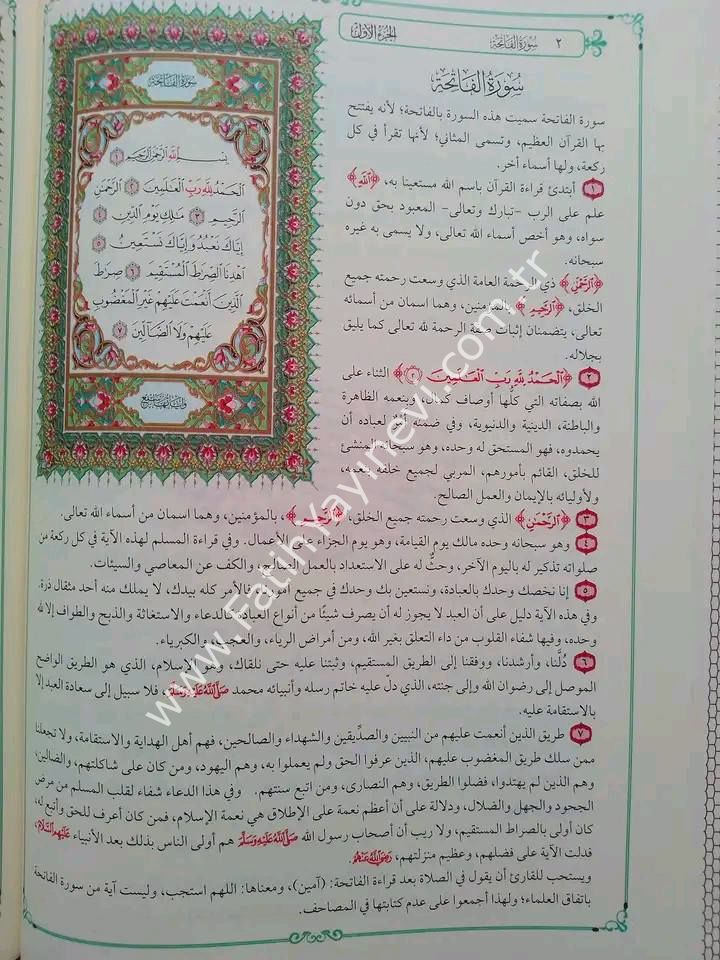 ٢ سُورَةُ الفَاتِحَة الجُزءُ الأوّل
سُورَةُ الفَاتِحَة
سورة الفاتحة سميت هذه السورة بالفاتحة؛ لأنه يفتتح
بها القرآن العظيم، وتسمى المثاني؛ لأنها تقرأ في كل
ركعة، ولها أسماء أخر.
١ أبتدئ قراءة القرآن باسم الله مستعينا به، ﴿اللَّهِ﴾
علم على الرب -تبارك وتعالى- المعبود بحق دون
سواه، وهو أخص أسماء الله تعالى، ولا يسمى به غيره
سبحانه.
﴿الرَّحْمَٰنِ﴾ ذي الرحمة العامة الذي وسعت رحمته جميع
الخلق، ﴿الرَّحِيمِ﴾ بالمؤمنين، وهما اسمان من أسمائه
تعالى، يتضمنان إثبات صفة الرحمة لله تعالى كما يليق
بجلاله.
٢ ﴿الْحَمْدُ لِلَّهِ رَبِّ الْعَالَمِينَ ٢﴾ الثناء على
الله بصفاته التي كلُّها أوصاف كمال، وبنعمه الظاهرة
والباطنة، الدينية والدنيوية، وفي ضمنه أمْرٌ لعباده أن
يحمدوه، فهو المستحق له وحده، وهو سبحانه المنشئ
للخلق، القائم بأمورهم، المربي لجميع خلقه بنعمه،
ولأوليائه بالإيمان والعمل الصالح.
٣ ﴿الرَّحْمَٰنِ﴾ الذي وسعت رحمته جميع الخلق، ﴿الرَّحِيمِ﴾، بالمؤمنين، وهما اسمان من أسماء الله تعالى.
٤ وهو سبحانه وحده مالك يوم القيامة، وهو يوم الجزاء على الأعمال. وفي قراءة المسلم لهذه الآية في كل ركعة من
صلواته تذكير له باليوم الآخر، وحثٌّ له على الاستعداد بالعمل الصالح، والكف عن المعاصي والسيئات.
٥ إنا نخصك وحدك بالعبادة، ونستعين بك وحدك في جميع أمورنا، فالأمر كله بيدك، لا يملك منه أحد مثقال ذرة.
وفي هذه الآية دليل على أن العبد لا يجوز له أن يصرف شيئًا من أنواع العبادة كالدعاء والاستغاثة والذبح والطواف إلا لله
وحده، وفيها شفاء القلوب من داء التعلق بغير الله، ومن أمراض الرياء، والعجب، والكبرياء.
٦ دُلَّنا، وأرشدنا، ووفقنا إلى الطريق المستقيم، وثبتنا عليه حتى نلقاك، وهو الإسلام، الذي هو الطريق الواضح
الموصل إلى رضوان الله وإلى جنته، الذي دلّ عليه خاتم رسله وأنبيائه محمد صَلَّى اللَّهُ عَلَيْهِ وَسَلَّمَ، فلا سبيل إلى سعادة العبد إلا
بالاستقامة عليه.
٧ طريق الذين أنعمت عليهم من النبيين والصدِّيقين والشهداء والصالحين، فهم أهل الهداية والاستقامة، ولا تجعلنا
ممن سلك طريق المغضوب عليهم، الذين عرفوا الحق ولم يعملوا به، وهم اليهود، ومن كان على شاكلتهم، والضالين،
وهم الذين لم يهتدوا، فضلوا الطريق، وهم النصارى، ومن اتبع سنتهم. وفي هذا الدعاء شفاء لقلب المسلم من مرض
الجحود والجهل والضلال، ودلالة على أن أعظم نعمة على الإطلاق هي نعمة الإسلام، فمن كان أعرف للحق وأتبع له،
كان أولى بالصراط المستقيم، ولا ريب أن أصحاب رسول الله صَلَّى اللَّهُ عَلَيْهِ وَسَلَّمَ هم أولى الناس بذلك بعد الأنبياء عَلَيْهِمُ السَّلَامُ،
فدلت الآية على فضلهم، وعظيم منزلتهم، رَضِيَ اللَّهُ عَنْهُمْ.
ويستحب للقارئ أن يقول في الصلاة بعد قراءة الفاتحة: (آمين)، ومعناها: اللهم استجب، وليست آية من سورة الفاتحة
باتفاق العلماء؛ ولهذا أجمعوا على عدم كتابتها في المصاحف.
سُورَةُ الفَاتِحَة
بِسْمِ اللَّهِ الرَّحْمَٰنِ الرَّحِيمِ ١
الْحَمْدُ لِلَّهِ رَبِّ الْعَالَمِينَ ٢ الرَّحْمَٰنِ
الرَّحِيمِ ٣ مَالِكِ يَوْمِ الدِّينِ ٤
إِيَّاكَ نَعْبُدُ وَإِيَّاكَ نَسْتَعِينُ ٥
اهْدِنَا الصِّرَاطَ الْمُسْتَقِيمَ ٦ صِرَاطَ
الَّذِينَ أَنْعَمْتَ عَلَيْهِمْ غَيْرِ الْمَغْضُوبِ
عَلَيْهِمْ وَلَا الضَّالِّينَ ٧
www.Fatihyayinevi.com.tr